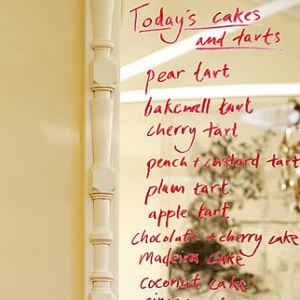 Today's cakes
and tarts
pear tart
bakewell tart
cherry tart
peach + custard tart
plum tart
apple tart
chocolate + cherry cake
madeira cake
coconut cake